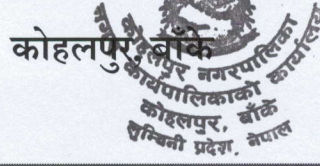 कोहलपुर, बाँके
कोहलपुर नगरपालिका
नगर कार्यपालिकाको कार्यालय
कोहलपुर, बाँके
लुम्बिनी प्रदेश, नेपाल